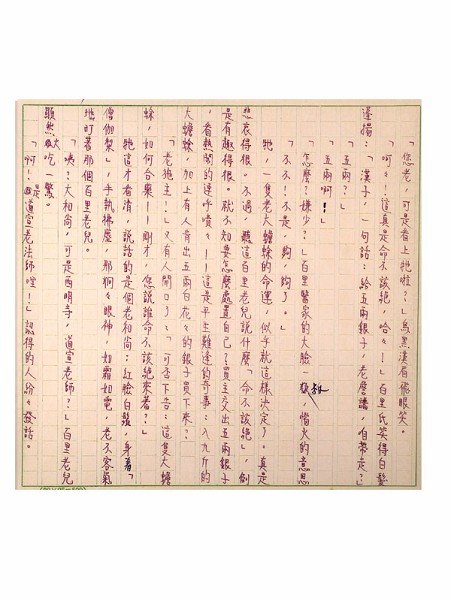 「您老,可是看上牠啦?」烏黑漢有倦眼笑。
「呵々!這真是命不該絕,哈々!」百里氏笑得白髮
逢揚:「漢子,一句話:給五兩銀子,老麼讓,自帶走?」
「五兩?」
「五兩啊!
「怎麼?嫌少?」百里醫家的大臉一板,惱火的意思
「不不!不是,夠,夠了。」
牠,一隻老大蟾蜍的命運,似乎就這樣決定了。真是
悲哀得很。不過,聽這百里老兒說什麼「命不該絕」,倒
是有趣得很。就不知要怎麼處置自己?買主交出五兩銀子
,看熱鬧的連呼嘖々——這是平生難逢的奇事:八九斤的
大蟾蜍,加上有人肯出五兩白花々的銀子買下來??
「老施主!」又有人開口了:「可否下告:這隻大蟾
蜍,如何合藥——剛才,您說誰命不該絕來著?」
牠這才看清,說話的是個老和尚:紅臉白鬚,身着「
僧伽梨」,手執拂塵,那炯々眼神,如霜如電,老不客氣
地盯著那個百里老兒。
「咦?大和尚,可是西明寺,道宣老師?」百里老兒
顯然大吃一驚。
「啊!是道宣老法師哩!」認得的人紛々發話。